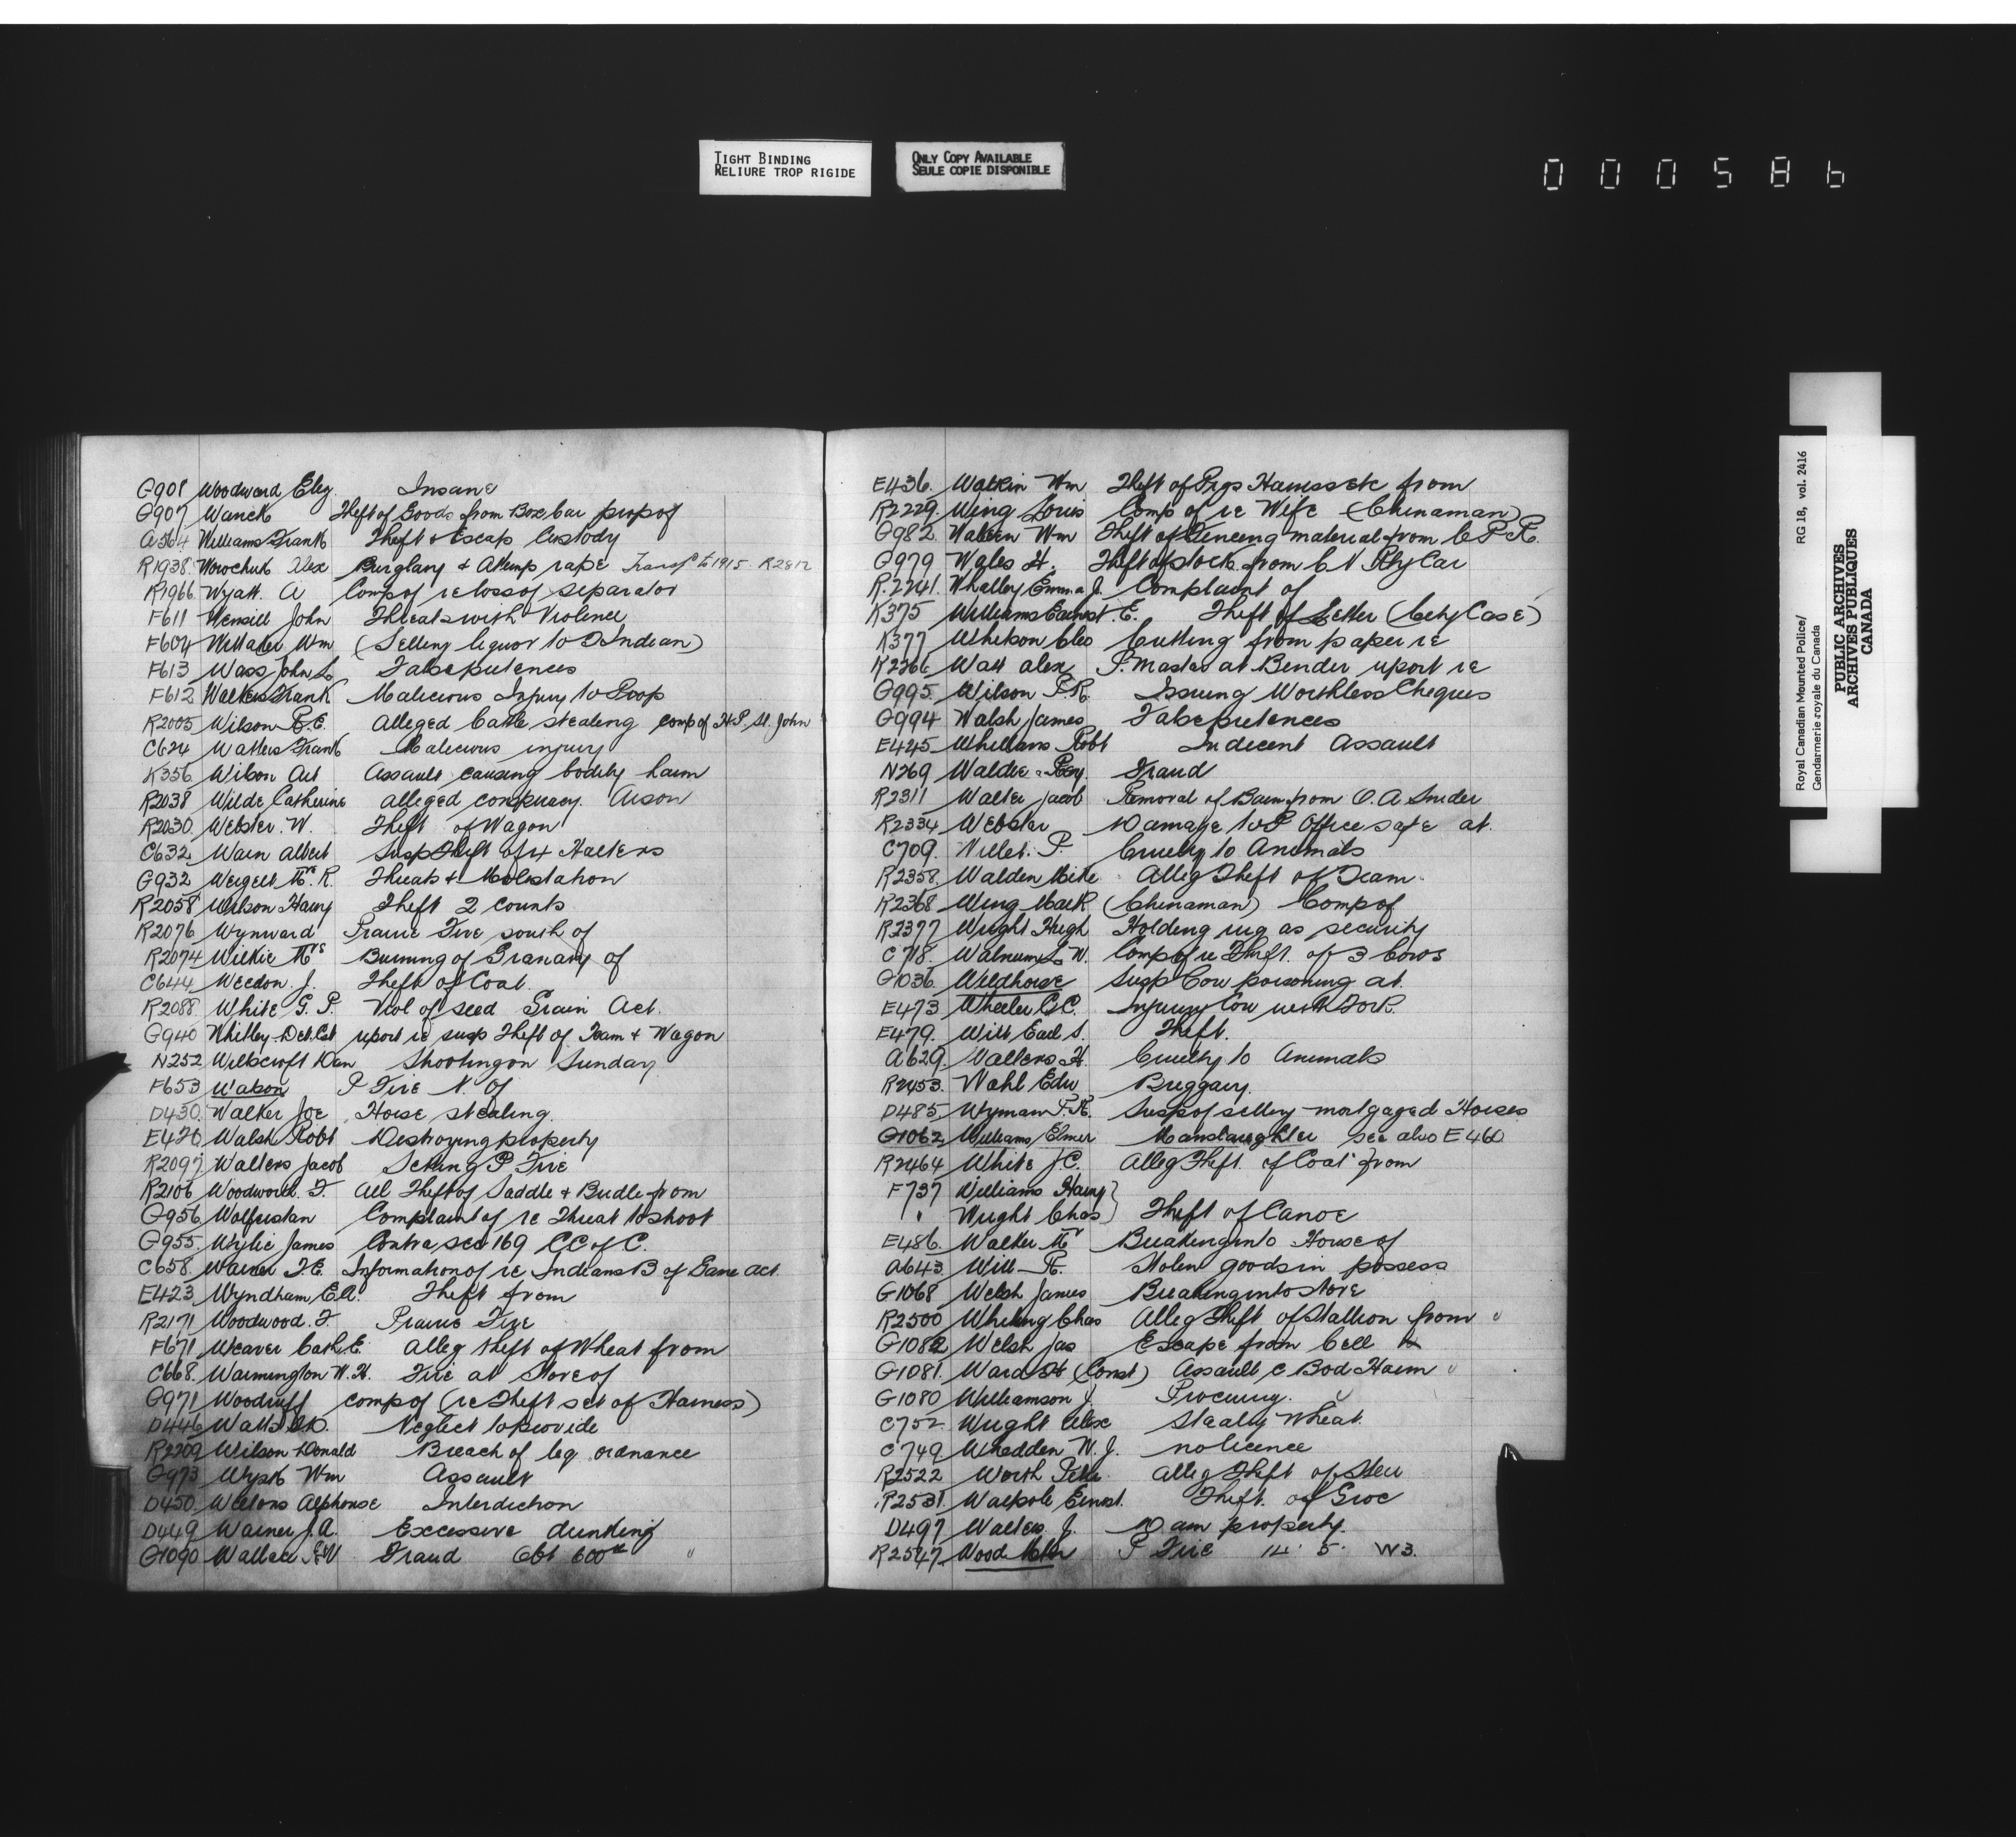 TIGHT BINDING
RELIURE TROP RIGIDE
ONLY COPY AVAILABLE
SEULE COPIE DISPONIBLE
000586
G908 Woodward Eleg. Insane
G907 Wanek Theft of Goods from Box Car prop of
A564 Williams Frank Theft & Escap Custody
R1938 Worochuk Alex Burglary & Attemp rape Transf to 1915 R2812
R1966 Wyatt A Comp of re loss of separator
F611 Wensill John Threats with Violence
F604 Wittaker Wm (Selling liquor to Indian)
F613 Wass John L False pretences
F612 Walters Frank Malicious Injury to Prop
R2005 Wilson R.E. Alleged Cattle stealing comp of H.P. St. John
C624 Watters Frank Malicious injury
K356 Wilson Art Assault causing bodily harm
R2038 Wilde Catherine alleged conspiracy. Arson
R2030 Webster. W. Theft of Wagon
C632 Warn Albert Susp Theft of 4 Halters
G932 Weigelt Mr. R. Threats & Molestation
R2058 Wilson Harry Theft 2 counts
R2076 Wynward Prairie Fire south of
R2074 Wilkie Mrs Burning of Granary of
C644 Weedon. J. Theft of Coal.
R2088 White G. P. Viol of seed Grain Act.
G940 Whitley Det. Cst report re susp Theft of Team & Wagon
N252 Willscroft Dan Shooting on Sunday
F653 Watson P Fire N. of
D430 Walker Joe Horse stealing.
E426 Walsh Robt Destroying property
R2097 Walters Jacob Setting P Fire
R2106 Woodworth. F. All Theft of Saddle & Bridle from
G956 Wolferstan Complaint of re Threat to shoot
G955 Wylie James Contra sec 169 CC of C.
C658 Warner F.E. Information of re Indians B of Game Act.
E423 Wyndham, E.A. Theft from
R2171 Woodwood. F. Prairie Fire
F671 Weaver Cash E. Alleg theft of Wheat from
C668. Warmington W.H. Fire at Store of
G971 Woodruff comp of (re Theft set of Harness)
D446 Watts Neglect to provide
R2209 Wilson Donald Breach of leq ordnance
G973 Wysk Wm Assault
D450 Alphonse Interdiction
D449 Warner J.A. Excessive drinking
G1090 Wallace Fraud Obt 600
E436. Watkin Wm Theft of Pigs Harness etc from
R2229 Wing Louis Comp of re Wife (Chinaman)
G982 Walken Wm Theft of Fencing material from C P R.
G979 Wales H. Theft of stock from C N Rly Car
R.2241. Whalley Emma J. Complaint of
K375 Williams Earnest. E. Theft of Letter (City Case)
K377 Cleo Cutting from paper re
R2266 Watt Alex P. Master at Bender report re
G995. Wilson P.R. Issuing Worthless Cheques
G994 Walsh James False pretences
E425 Whellans Robt Indecent Assault
N269 Waldie Fraud
R2311 Walter Jacob Removal of Barn from O. A. Snider
R2334 Webster Damage to P Office safe at.
C709. Willet. P. Cruelty to Animals
R2358. Walden Mike Alleg Theft of Team.
R2368 Wing Mark (Chinaman) Comp of
R2377 Wright Hugh Holding rug as security
C718. Walnum L W. Comp of re Theft. of 3 Cows
G1036. Wildhorse Susp Cow poisoning at.
E473 Wheeler C.C. Injuring Cow with Fork.
E479. Witt Earl S. Theft.
A629. Walters H. Cruelty to Animals
R2453. Wahl Edw Buggary.
D485. Wyman P.R. Susp of selling mortgaged Horses
G1062 Williams Elmer Manslaughter see also E460
R2464 White J.C. Alleg Theft. of Coal from
F737 Williams Harry }
" Wright Chas } Theft of Canoe
E486. Walker Mr Breaking into House of
A643. Will R. Stolen goods in possess
G1068 Welsh James Breaking into store
R2500 Whiting Chas Alleg Theft of Stallion from "
G1082 Welsh Jas Escape from Cell
G1081. Ward H (Const) Assault c Bod Harm "
G1080 Williamson J. Procuring. "
C752. Wright Alex Stealg Wheat.
C749 Whedden W. J. no licence
R2522 Worth Peter Alleg Theft of Steer
R2531. Walpole Ernst. Theft. of Groc
D497 Walters J. Dam property.
R2547. Wood Mtn P Fire 14. 5. W3.
Royal Canadian Mounted Police/ RG 18, vol. 2416
Gendarmerie royale du Canada
PUBLIC ARCHIVES
ARCHIVES PUBLIQUES
CANADA